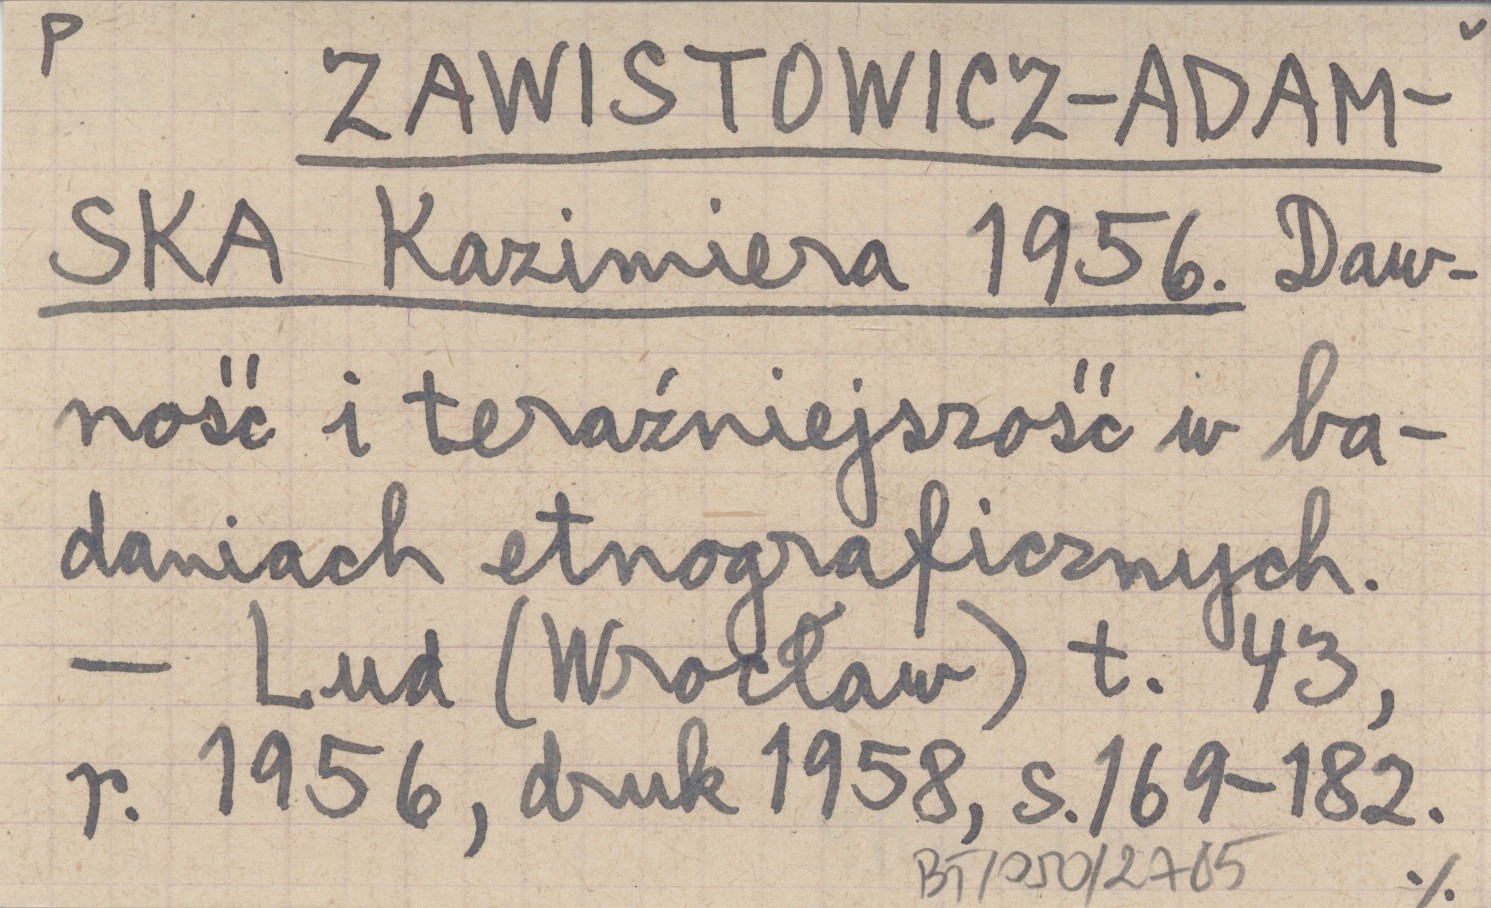 P
ZAWISTOWICZ-ADAM-
SKA Kazimiera 1956. Daw-
ność i teraźniejszość w ba-
daniach etnograficznych.
— Lud (Wrocław) t. 43,
r. 1956, druk 1958, s. 169-182.
·/.